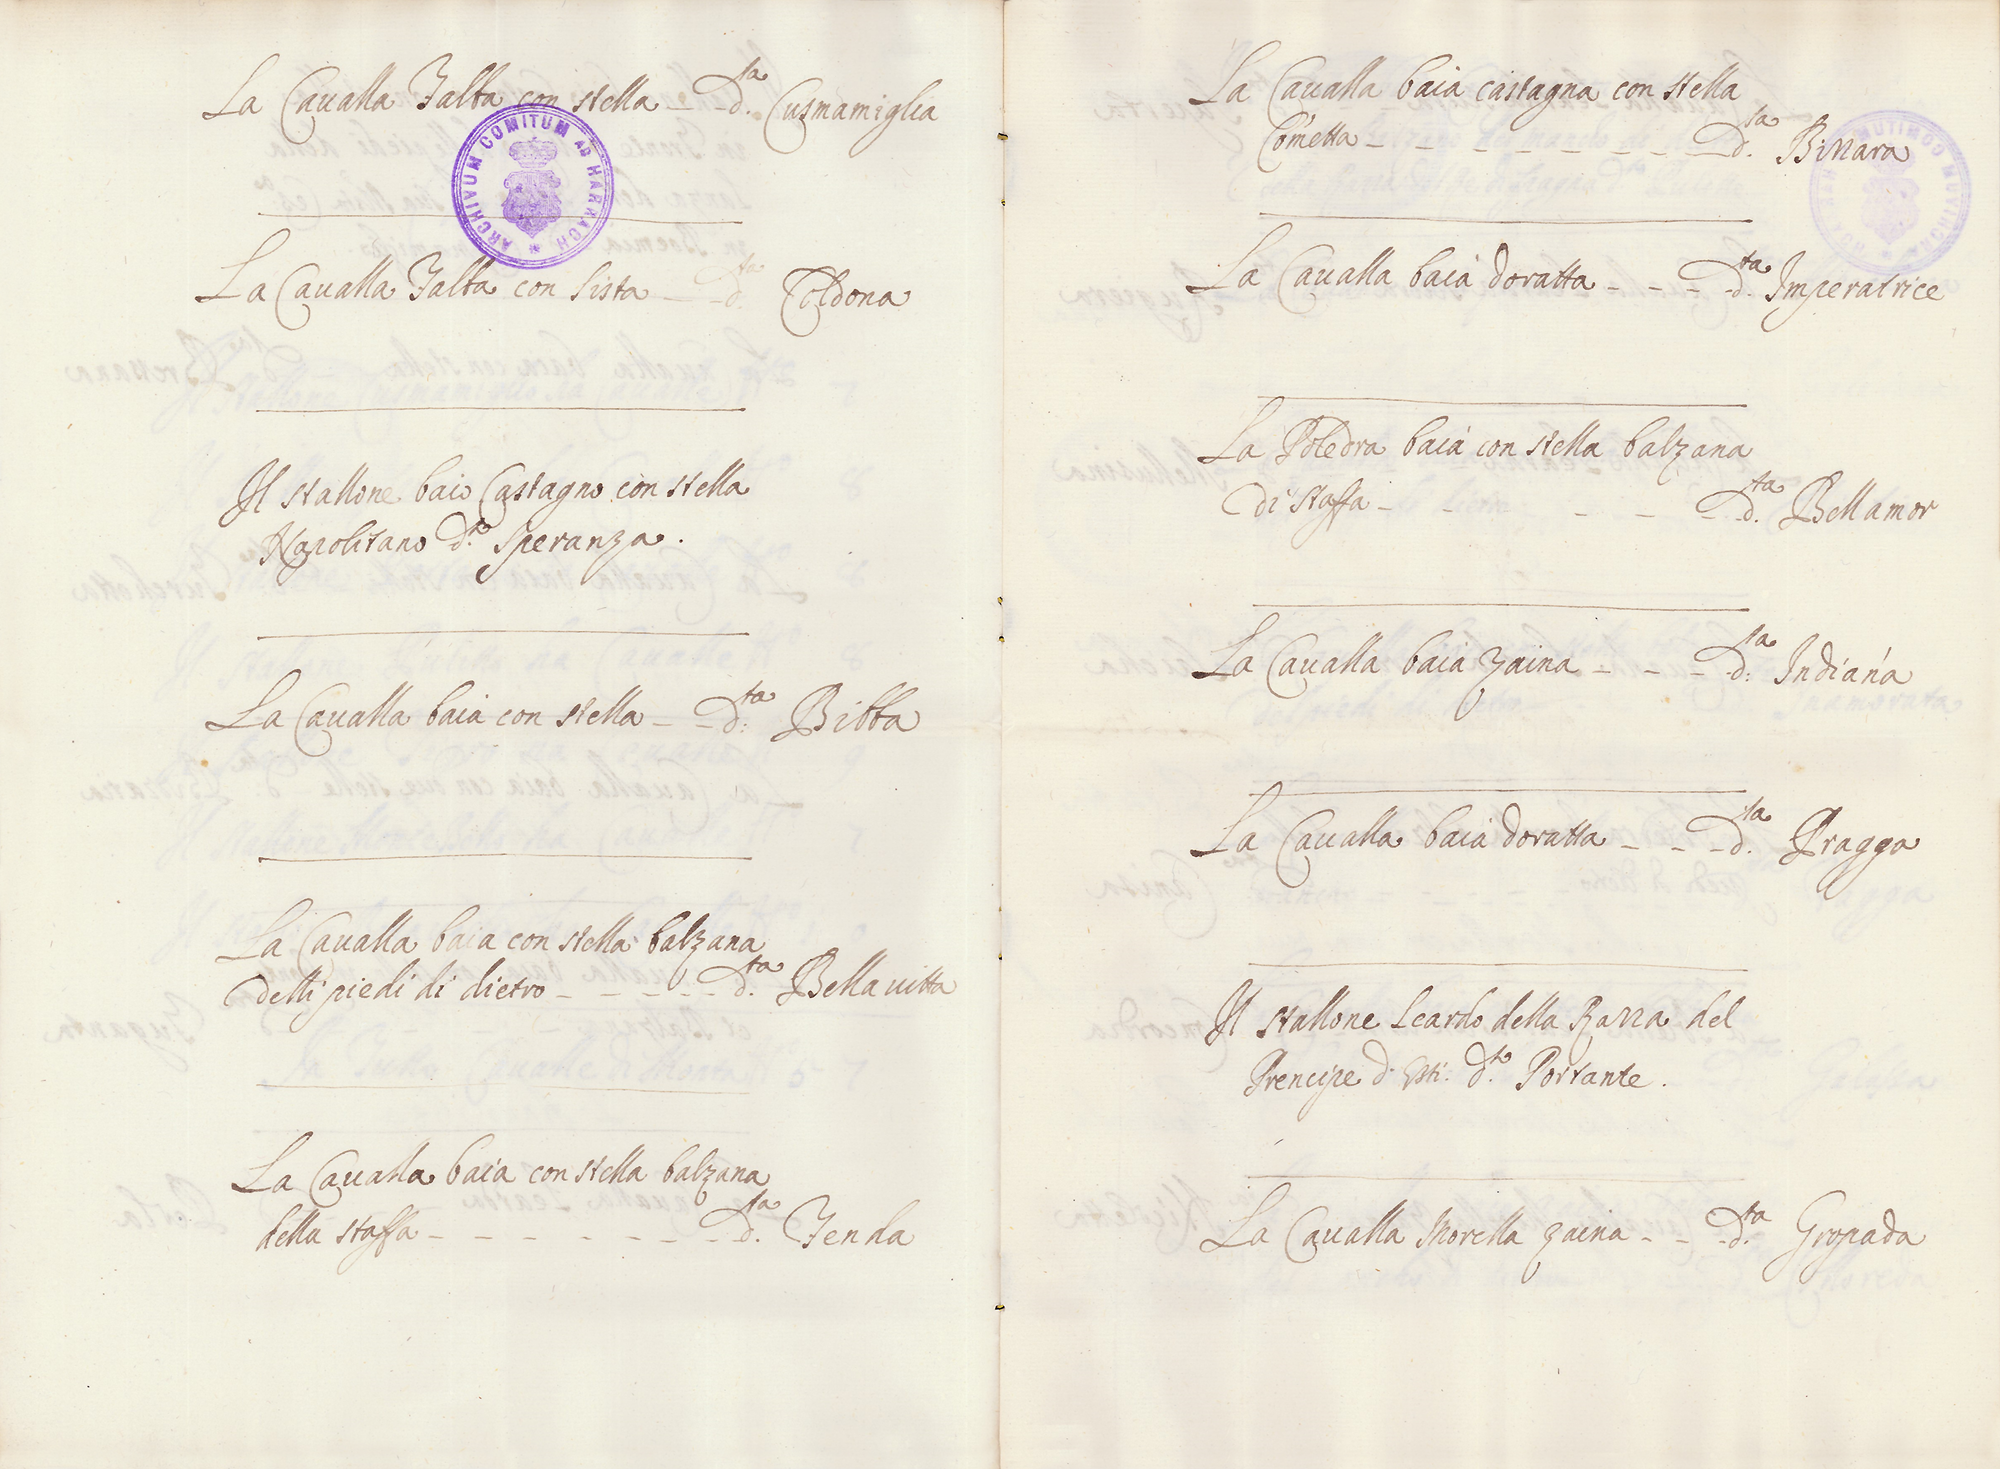 La Caualla Falba con stella - - d.ta Cusmamiglia
ARCHIVUM COMITUM AB HARRACH
La Caualla Falba con lista - - d.ta Toldona
Il stallone baio Castagno con stella
Napolitano d.to Speranza.
La Caualla baia con stella - - d.ta Bibba
La Caualla baia con stella balzana
delli piedi di dietro - - - - - d.ta Bellauitta
La Caualla baia con stella balzana
della staffa - - - - - - - d.ta Fenda
La Caualla baia castagna con stella
Cometta - - - - - - - - d.ta Bizzara
La Caualla baia doratta - - - - d.ta Imperatrice
La Poledra baia con stella balzana
di staffa - - - - - d.ta Bellamor
La Caualla baia zaina - - - d.ta Indiana
La Caualla baia doratta - - - d.ta Pragga
Il stallone Leardo della Razza del
Prencipe d' Esti. d.to Portante.
La Caualla Morella zaina - - - d.ta Gropada